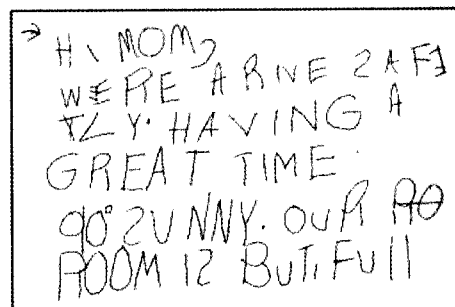 → HI MOM,
WERE ARIVE 2AFE
TLY. HAVING A
GREAT TIME.
90° 2UNNY. OUR RO
ROOM I2 BUTIFUll